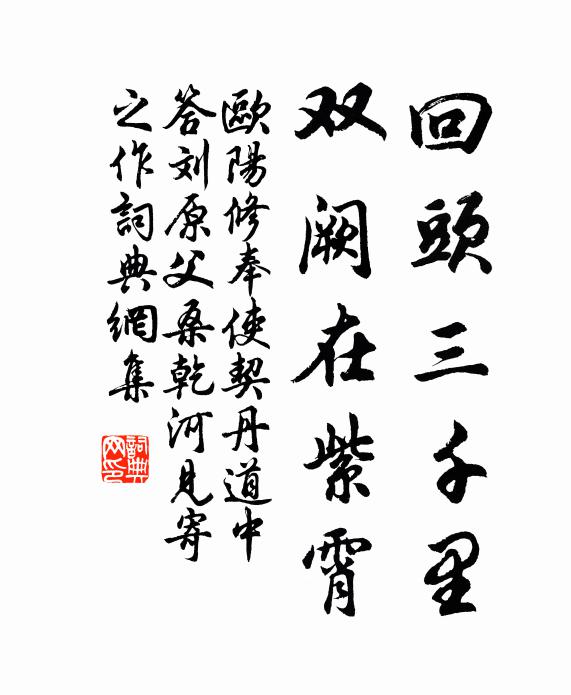 回頭三千里
双阙在紫霄
歐陽修奉使契丹道中
答刘原父桑乾河見寄
之作詞典網集
詞典
网印